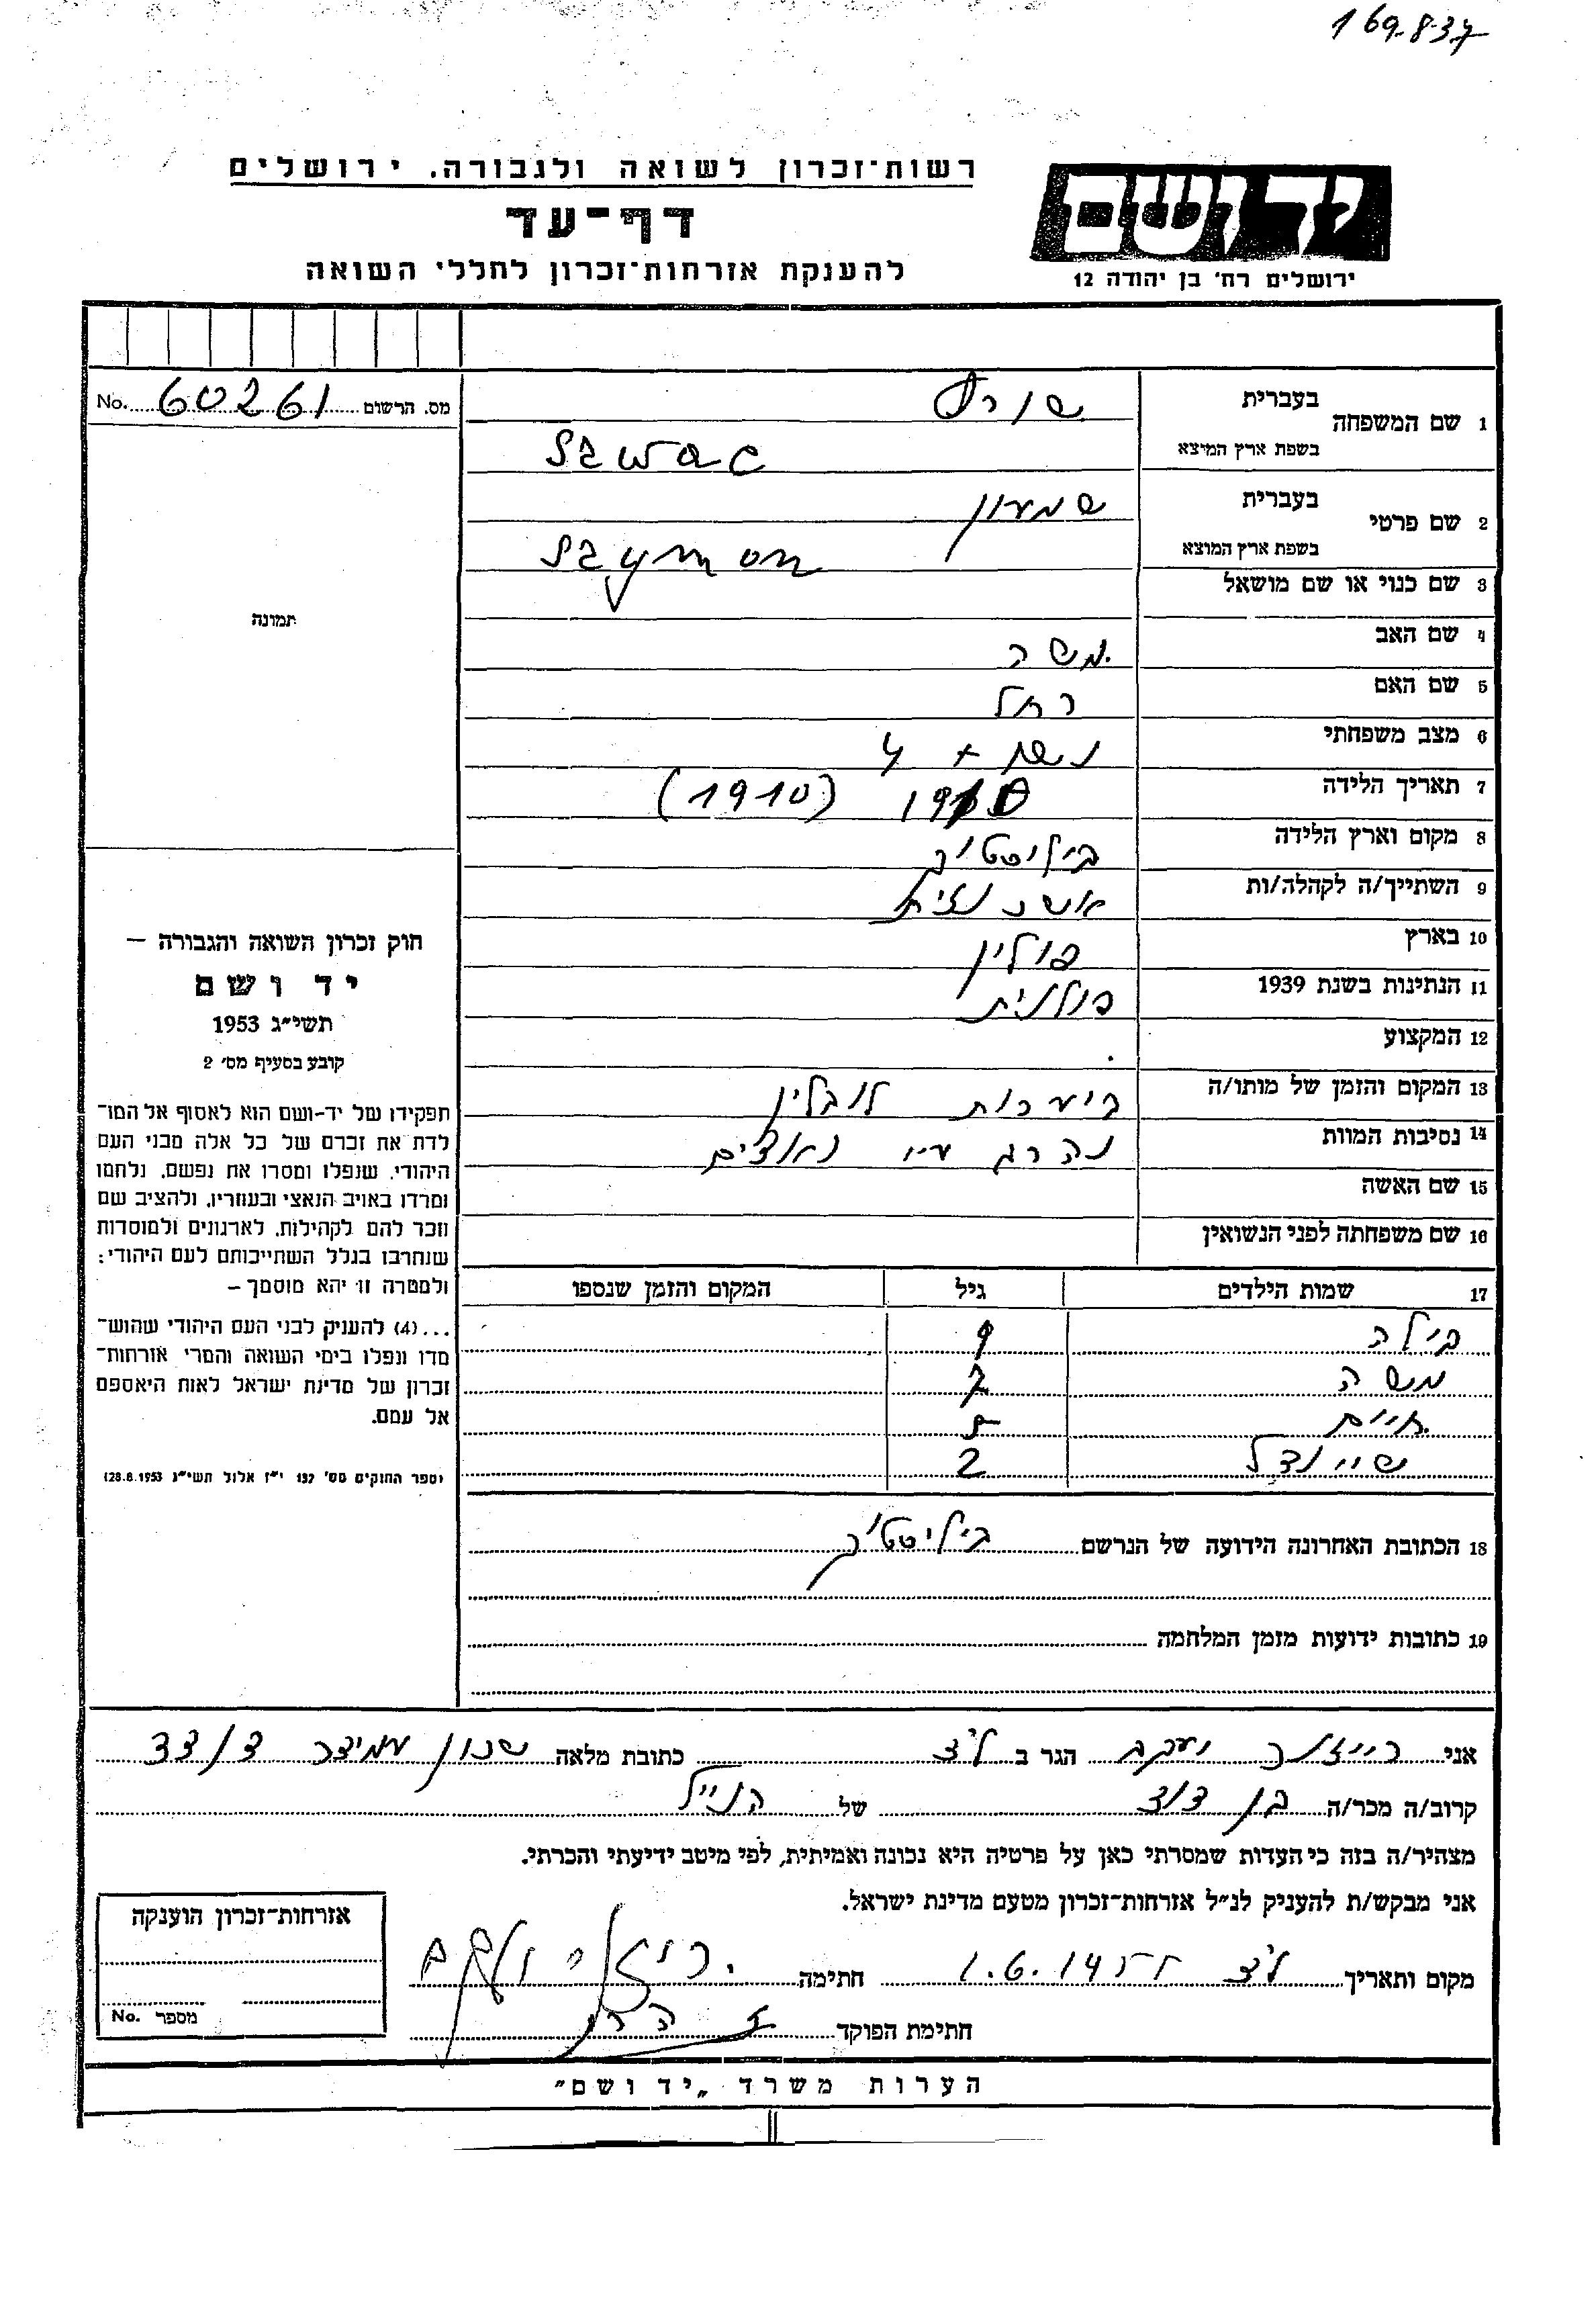 169-8-37
רשות־זכרון לשואה ולגבורה. ירושלים
דף־עד
להענקת אזרחות־זכרון לחללי השואה
יד ושם
ירושלים רח׳ בן יהודה 12
מס. הרשום 60261 No.
תמונה
חוק זכרון השואה והגבורה —
יד ושם
תשי״ג 1953
קובע בסעיף מס׳ 2
תפקידו של יד-ושם הוא לאסוף אל המו־
לדת את זכרם של כל אלה מבני העם
היהודי, שנפלו ומסרו את נפשם, נלחמו
ומרדו באויב הנאצי ובעוזריו, ולהציב שם
וזכר להם לקהילות, לארגונים ולמוסדות
שנחרבו בגלל השתייכותם לעם היהודי;
ולמטרה זו יהא מוסמך —
...(4) להעניק לבני העם היהודי שהוש־
מדו ונפלו בימי השואה והמרי אזרחות־
זכרון של מדינת ישראל לאות היאספם
אל עמם.
(ספר החוקים מס׳ 132 י״ז אלול תשי״ג 28.8.1953)
1 שם המשפחה בעברית
בשפת ארץ המיצא
2 שם פרטי בעברית שמעון
בשפת ארץ המוצא Szymon
3 שם כנוי או שם מושאל
4 שם האב משה
5 שם האם רחל
6 מצב משפחתי נשוי + 4
7 תאריך הלידה 1910 (1910)
8 מקום וארץ הלידה ביליסטוק
9 השתייך/ה לקהלה/ות אשכנזית
10 בארץ פולין
11 הנתינות בשנת 1939 פולנית
12 המקצוע
13 המקום והזמן של מותו/ה ביערות לובלין
14 נסיבות המוות נהרג ע״י נאצים
15 שם האשה
16 שם משפחתה לפני הנשואין
17 שמות הילדים גיל המקום והזמן שנספו
בילה 9
משה 7
חיים 5
שיינדל 2
18 הכתובת האחרונה הידועה של הנרשם ביליסטוק
19 כתובות ידועות מזמן המלחמה
אני יעקב הגר ב כתובת מלאה שכון עמידר
קרוב/ה מכר/ה בן דוד של הנ״ל
מצהיר/ה בזה כי העדות שמסרתי כאן על פרטיה היא נכונה ואמיתית, לפי מיטב ידיעתי והכרתי.
אני מבקש/ת להעניק לנ״ל אזרחות־זכרון מטעם מדינת ישראל.
מקום ותאריך 1.6.1955 חתימה
חתימת הפוקד
אזרחות־זכרון הוענקה
מספר No.
הערות משרד „יד ושם״